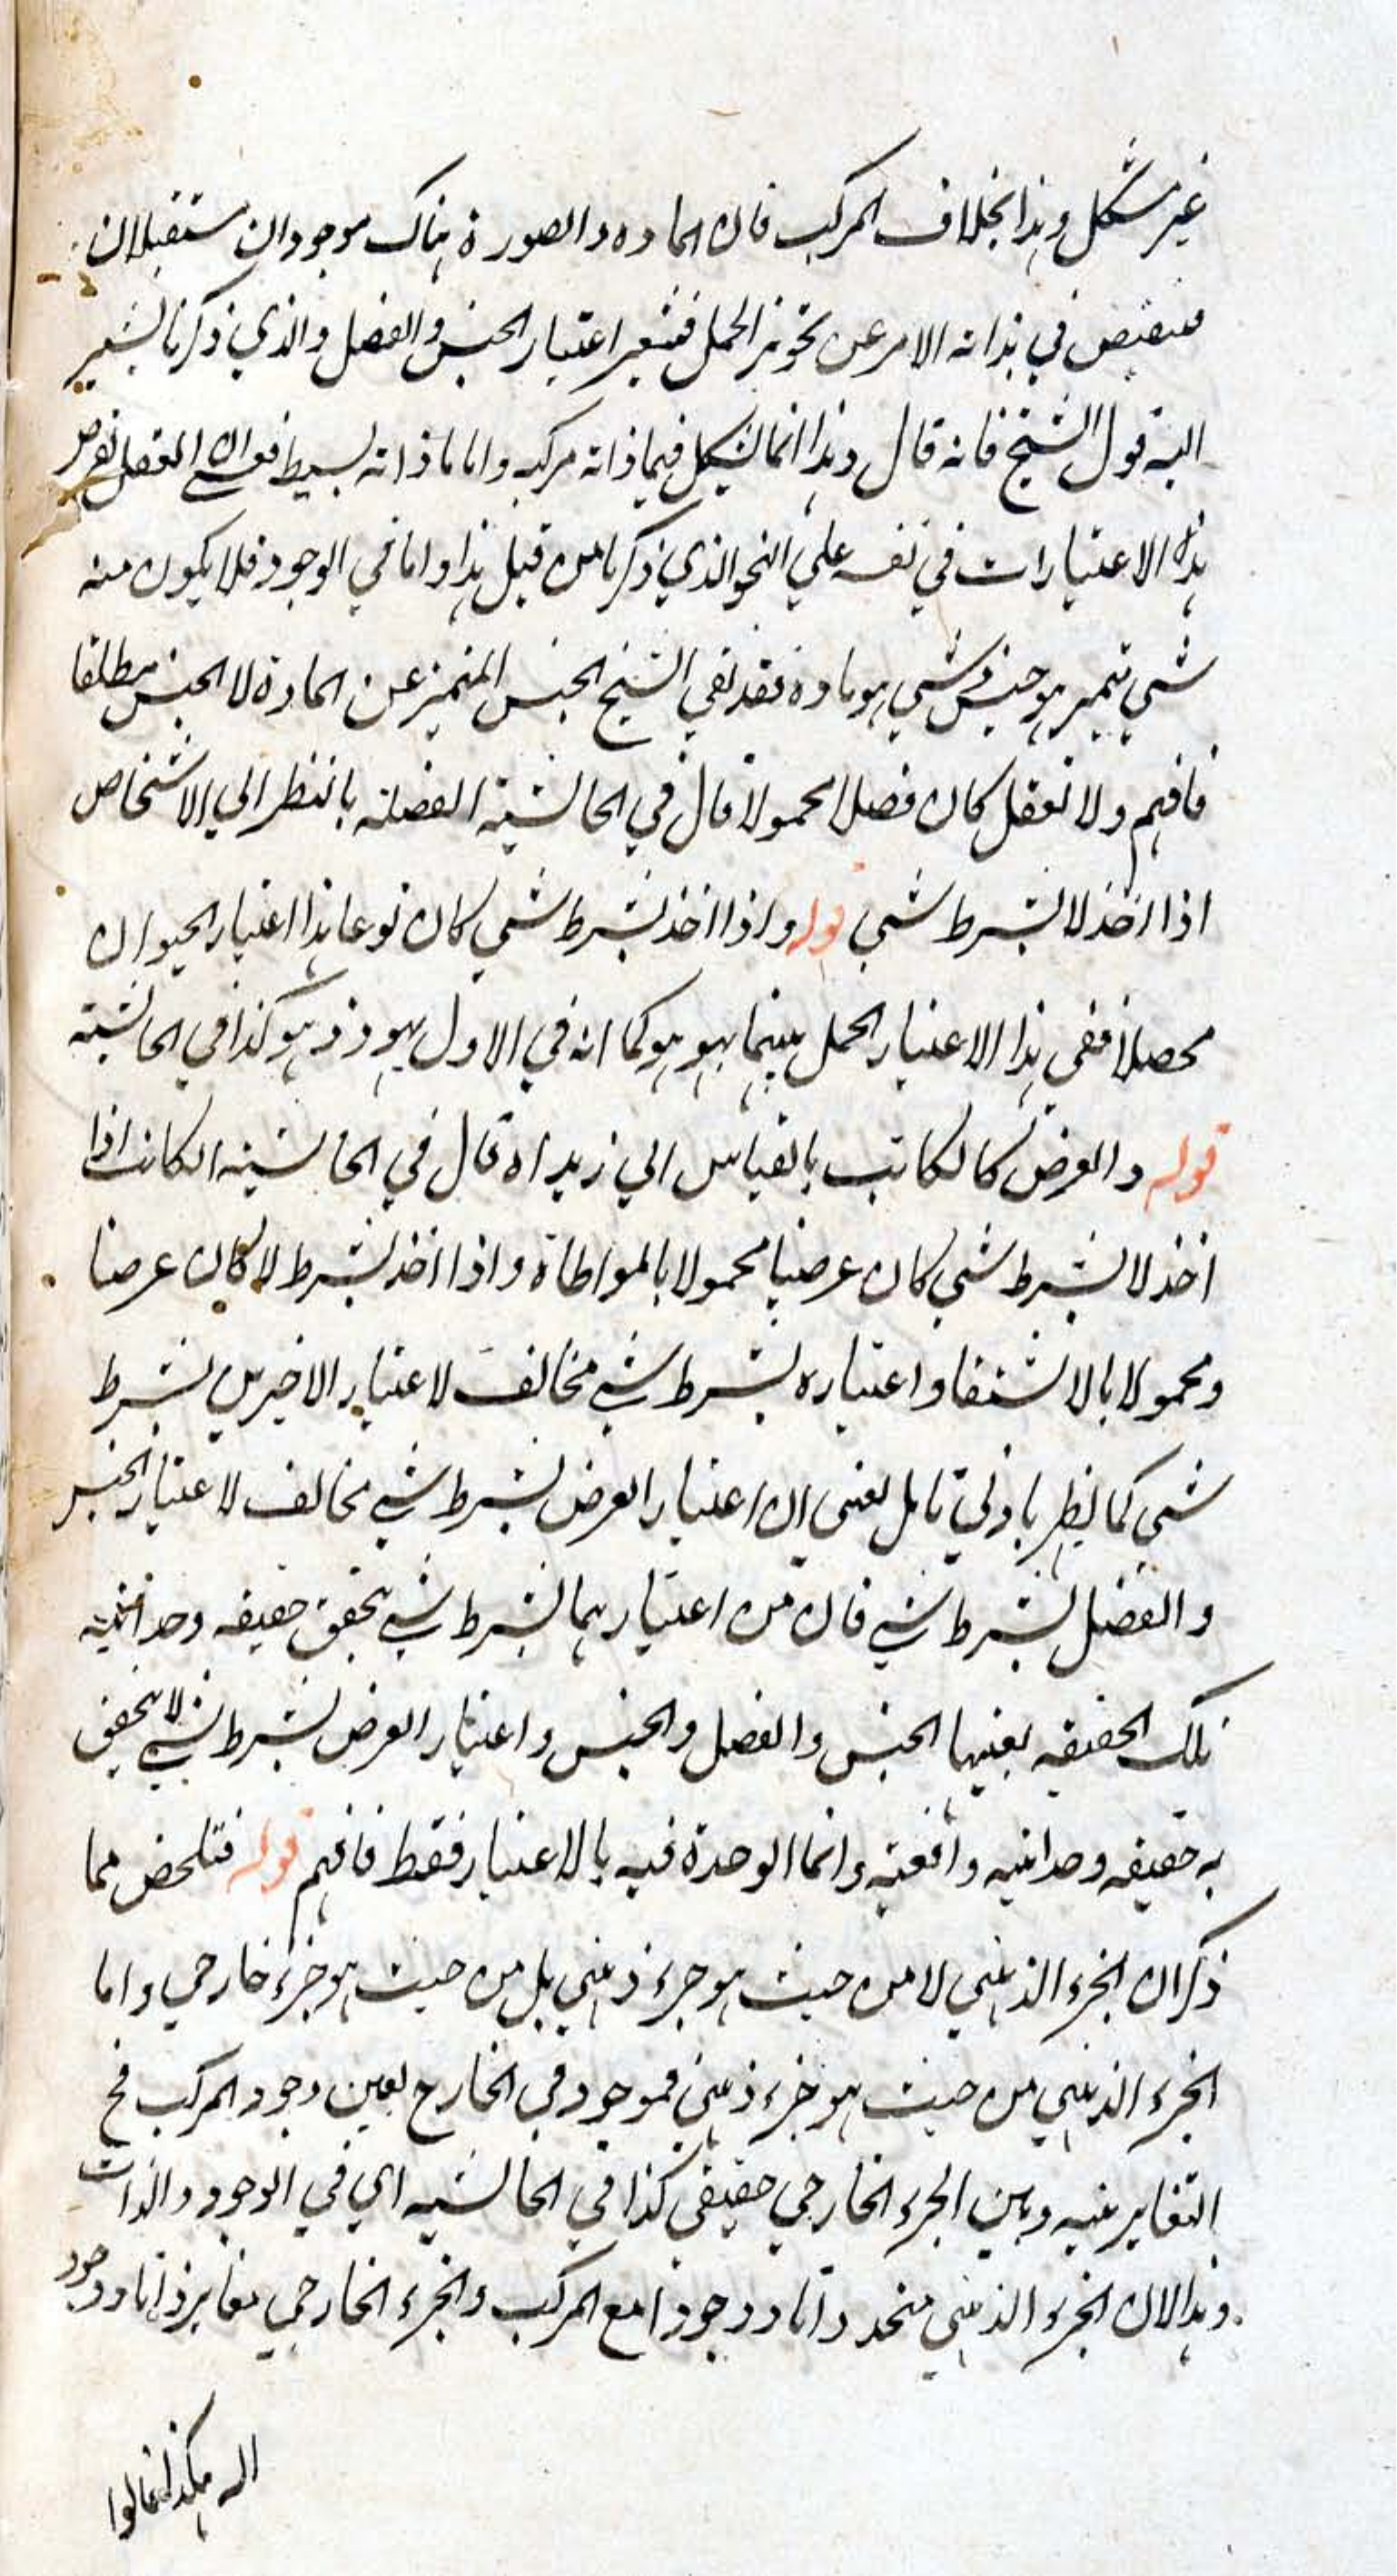 غير مشكل وهذا بخلاف المركب فان المادة والصورة هناك موجودان مستقبلان
في ذاته الامر عن تجويز الحمل فيتعسر اعتبار الجنس والفصل والذي ذكرنا يشير
اليه قول الشيخ فانه قال وهذا انما يشكل فيما ذاته مركب واما ما ذاته بسيط فعسى ان العقل يفرض
هذه الاعتبارات في نفسه علي النحو الذي ذكرنا من قبل هذا واما في الوجود فلا يكون منه
شي متميز هو جنس وشي هو مادة فقد نفي الشيخ الجنس المتميز عن المادة لا الجنس مطلقا
فافهم ولا تغفل كان فصلا محمولا قال في الحاشية الفصلته بالنظر الي الاشخاص
اذا اخذ لا بشرط شي قوله واذا اخذ بشرط شي كان نوعا هذا اعتبار الحيوان
محصلا ففي هذا الاعتبار الحمل بينهما بهو هو كما انه في الاول بهو ذو هو كذا في الحاشية
قوله والعرض كالكاتب بالقياس الي زيد اه قال في الحاشية الكاتب اذا
اخذ لا بشرط شي كان عرضيا محمولا بالمواطاة واذا اخذ بشرط لا كان عرضا
ومحمولا بالاشتقاق واعتباره بشرط شي مخالف لاعتبار الاخيرين بشرط
شي كما يظهر بادني تامل يعني ان اعتبار العرض بشرط شي مخالف لاعتبار الجنس
والفصل بشرط شي فان من اعتبارهما بشرط شي يحقق حقيقه وحدانيه
تلك الحقيقه بعينها الجنس والفصل والجنس واعتبار العرض بشرط شي لا يتحقق
به حقيقه وحدانيه واقعية وانما الوحدة فيه بالاعتبار فقط فافهم قوله فتلخص مما
ذكر ان الجزء الذهني لا من حيث هو جزء ذهني بل من حيث هو جزء خارجي واما
الجزء الذهني من حيث هو جزء ذهني فموجود في الخارج بعين وجود المركب فح
التغاير بينه وبين الجزء الخارجي حقيقي كذا في الحاشيه اي في الوجود والذات
وهذا لان الجزء الذهني متحد ذاتا ووجودا مع المركب والجزء الخارجي مغاير ذاتا ووجود
اله هكذا قالوا